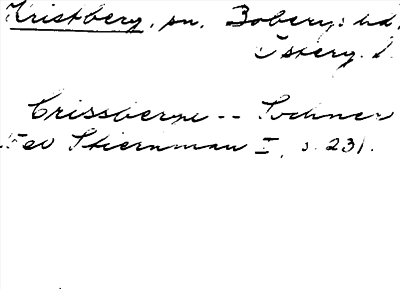 Kristberg, sn, Boberg: hd,
Österg. l.
Crissberge -- Sochner
Stiernman I, s. 231.